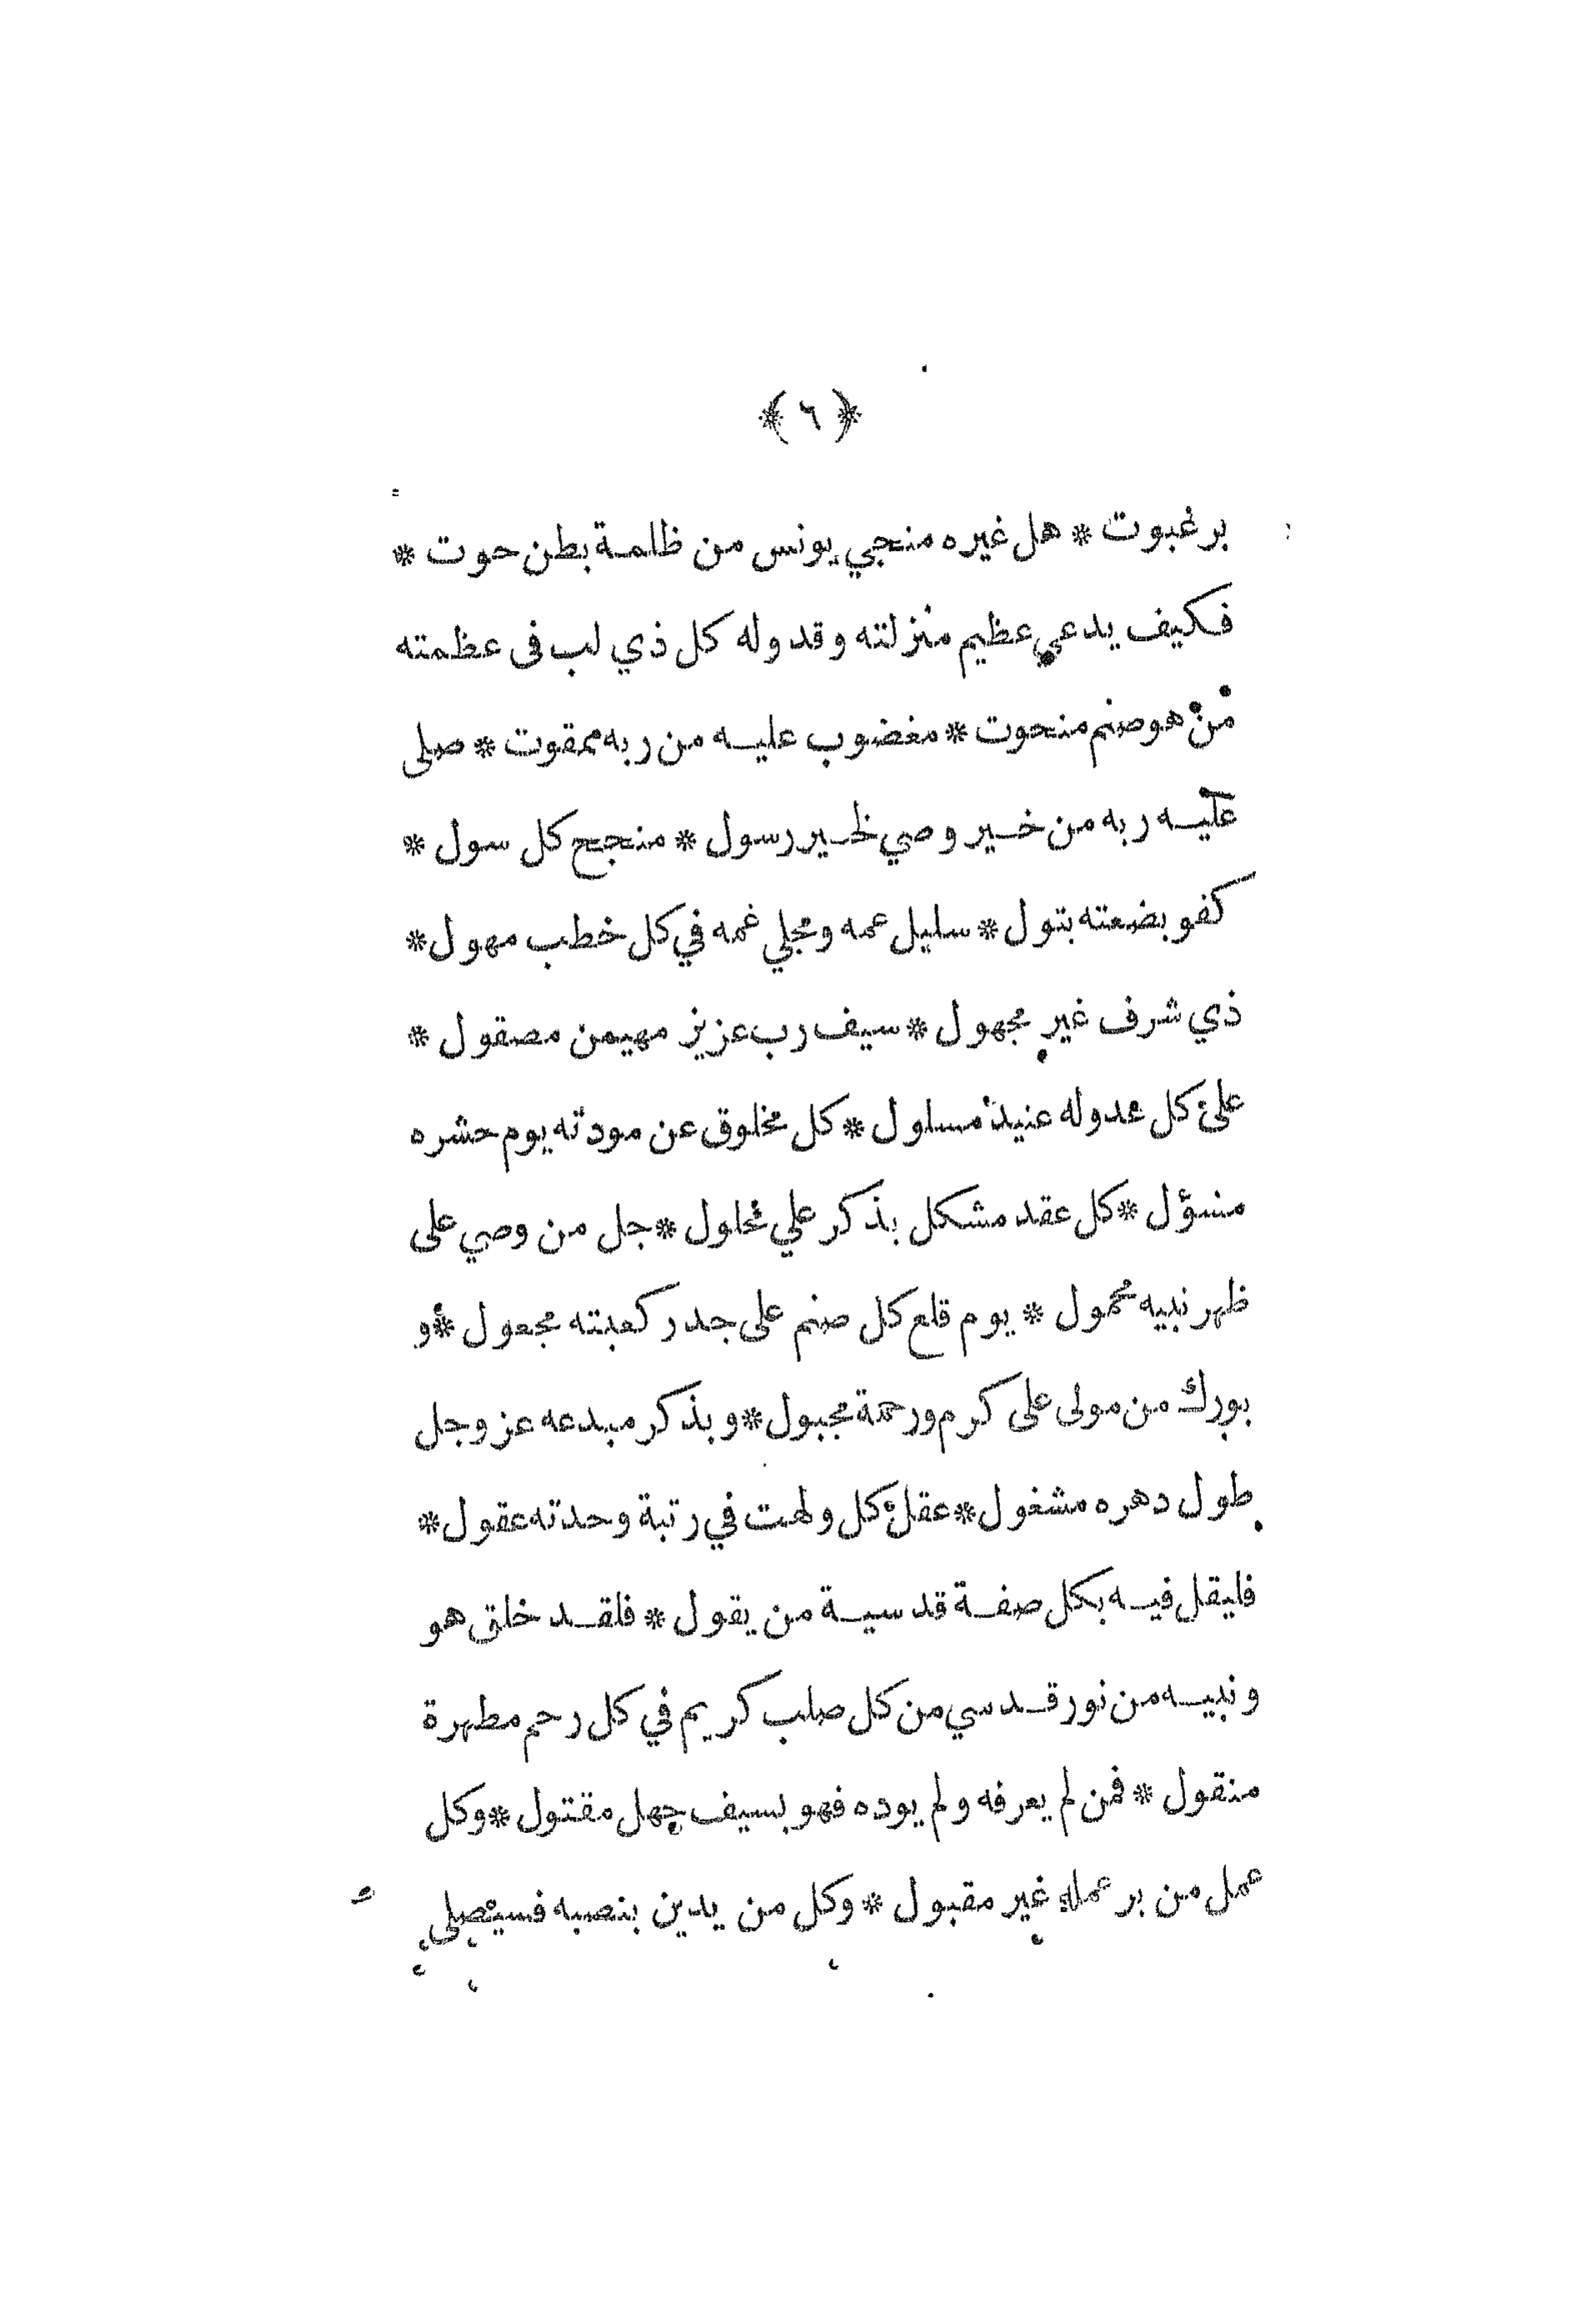 ﴿ ٦ ﴾
برغبوت * هل غيره منجي يونس من ظلمة بطن حوت *
فكيف يدعي عظيم منزلته وقد وله كل ذي لب فى عظمته
من هو صنم منحوت * مغضوب عليه من ربه ممقوت * صلى
عليه ربه من خير وصي لخير رسول * منجح كل سول *
كفو بضعته بتول * سليل عمه ومجلي غمه في كل خطب مهول *
ذي شرف غير مجهول * سيف رب عزيز مهيمن مصقول *
على كل عدوله عنيد مسلول * كل مخلوق عن مودته يوم حشره
مسؤل * كل عقد مشكل بذكر علي محلول * جل من وصي على
ظهر نبيه محمول * يوم قلع كل صنم على جدر كعبته مجعول * و
بورك من مولى على كرم ورحمة مجبول * وبذكر مبدعه عز وجل
طول دهره مشغول * عقل كل ولهت في رتبة وحدته عقول *
فليقل فيه بكل صفة قدسية من يقول * فلقد خلق هو
ونبيه من نور قدسي من كل صلب كريم في كل رحم مطهرة
منقول * فمن لم يعرفه ولم يوده فهو بسيف جهل مقتول * وكل
عمل من بر عمله غير مقبول * وكل من يدين بنصبه فسيصلى